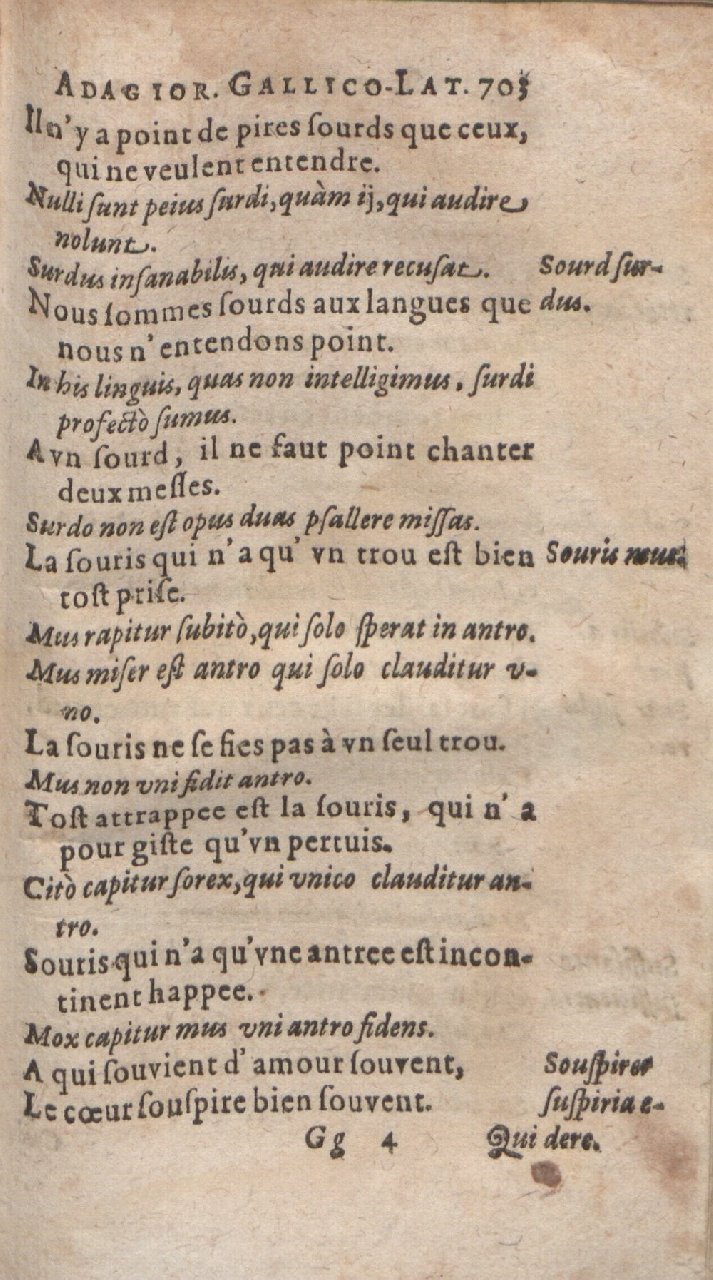 ADAGIOR. GALLICO-LAT. 703
Il n'y a point de pires ſourds que ceux,
qui ne veulent entendre.
Nulli ſunt peius ſurdi, quàm ij, qui audire
nolunt.
Surdus inſanabilis, qui audire recuſat.
Sourd ſur-
dus.
Nous ſommes ſourds aux langues que
nous n'entendons point.
In his linguis, quas non intelligimus, ſurdi
profectò ſumus.
A vn ſourd, il ne faut point chanter
deux meſſes.
Surdo non eſt opus duas pſallere miſſas.
La ſouris qui n'a qu'vn trou eſt bien
toſt priſe.
Souris mus.
Mus rapitur ſubitò, qui ſolo ſperat in antro.
Mus miſer eſt antro qui ſolo clauditur v-
no.
La ſouris ne ſe fies pas à vn ſeul trou.
Mus non vni fidit antro.
Toſt attrappee eſt la ſouris, qui n'a
pour giſte qu'vn pertuis.
Citò capitur ſorex, qui vnico clauditur an-
tro.
Souris qui n'a qu'vne antree eſt incon-
tinent happee.
Mox capitur mus vni antro fidens.
A qui ſouvient d'amour ſouvent,
Le cœur ſouſpire bien ſouvent.
Souſpirer
ſuſpiria e-
dere.
Gg 4
Qui